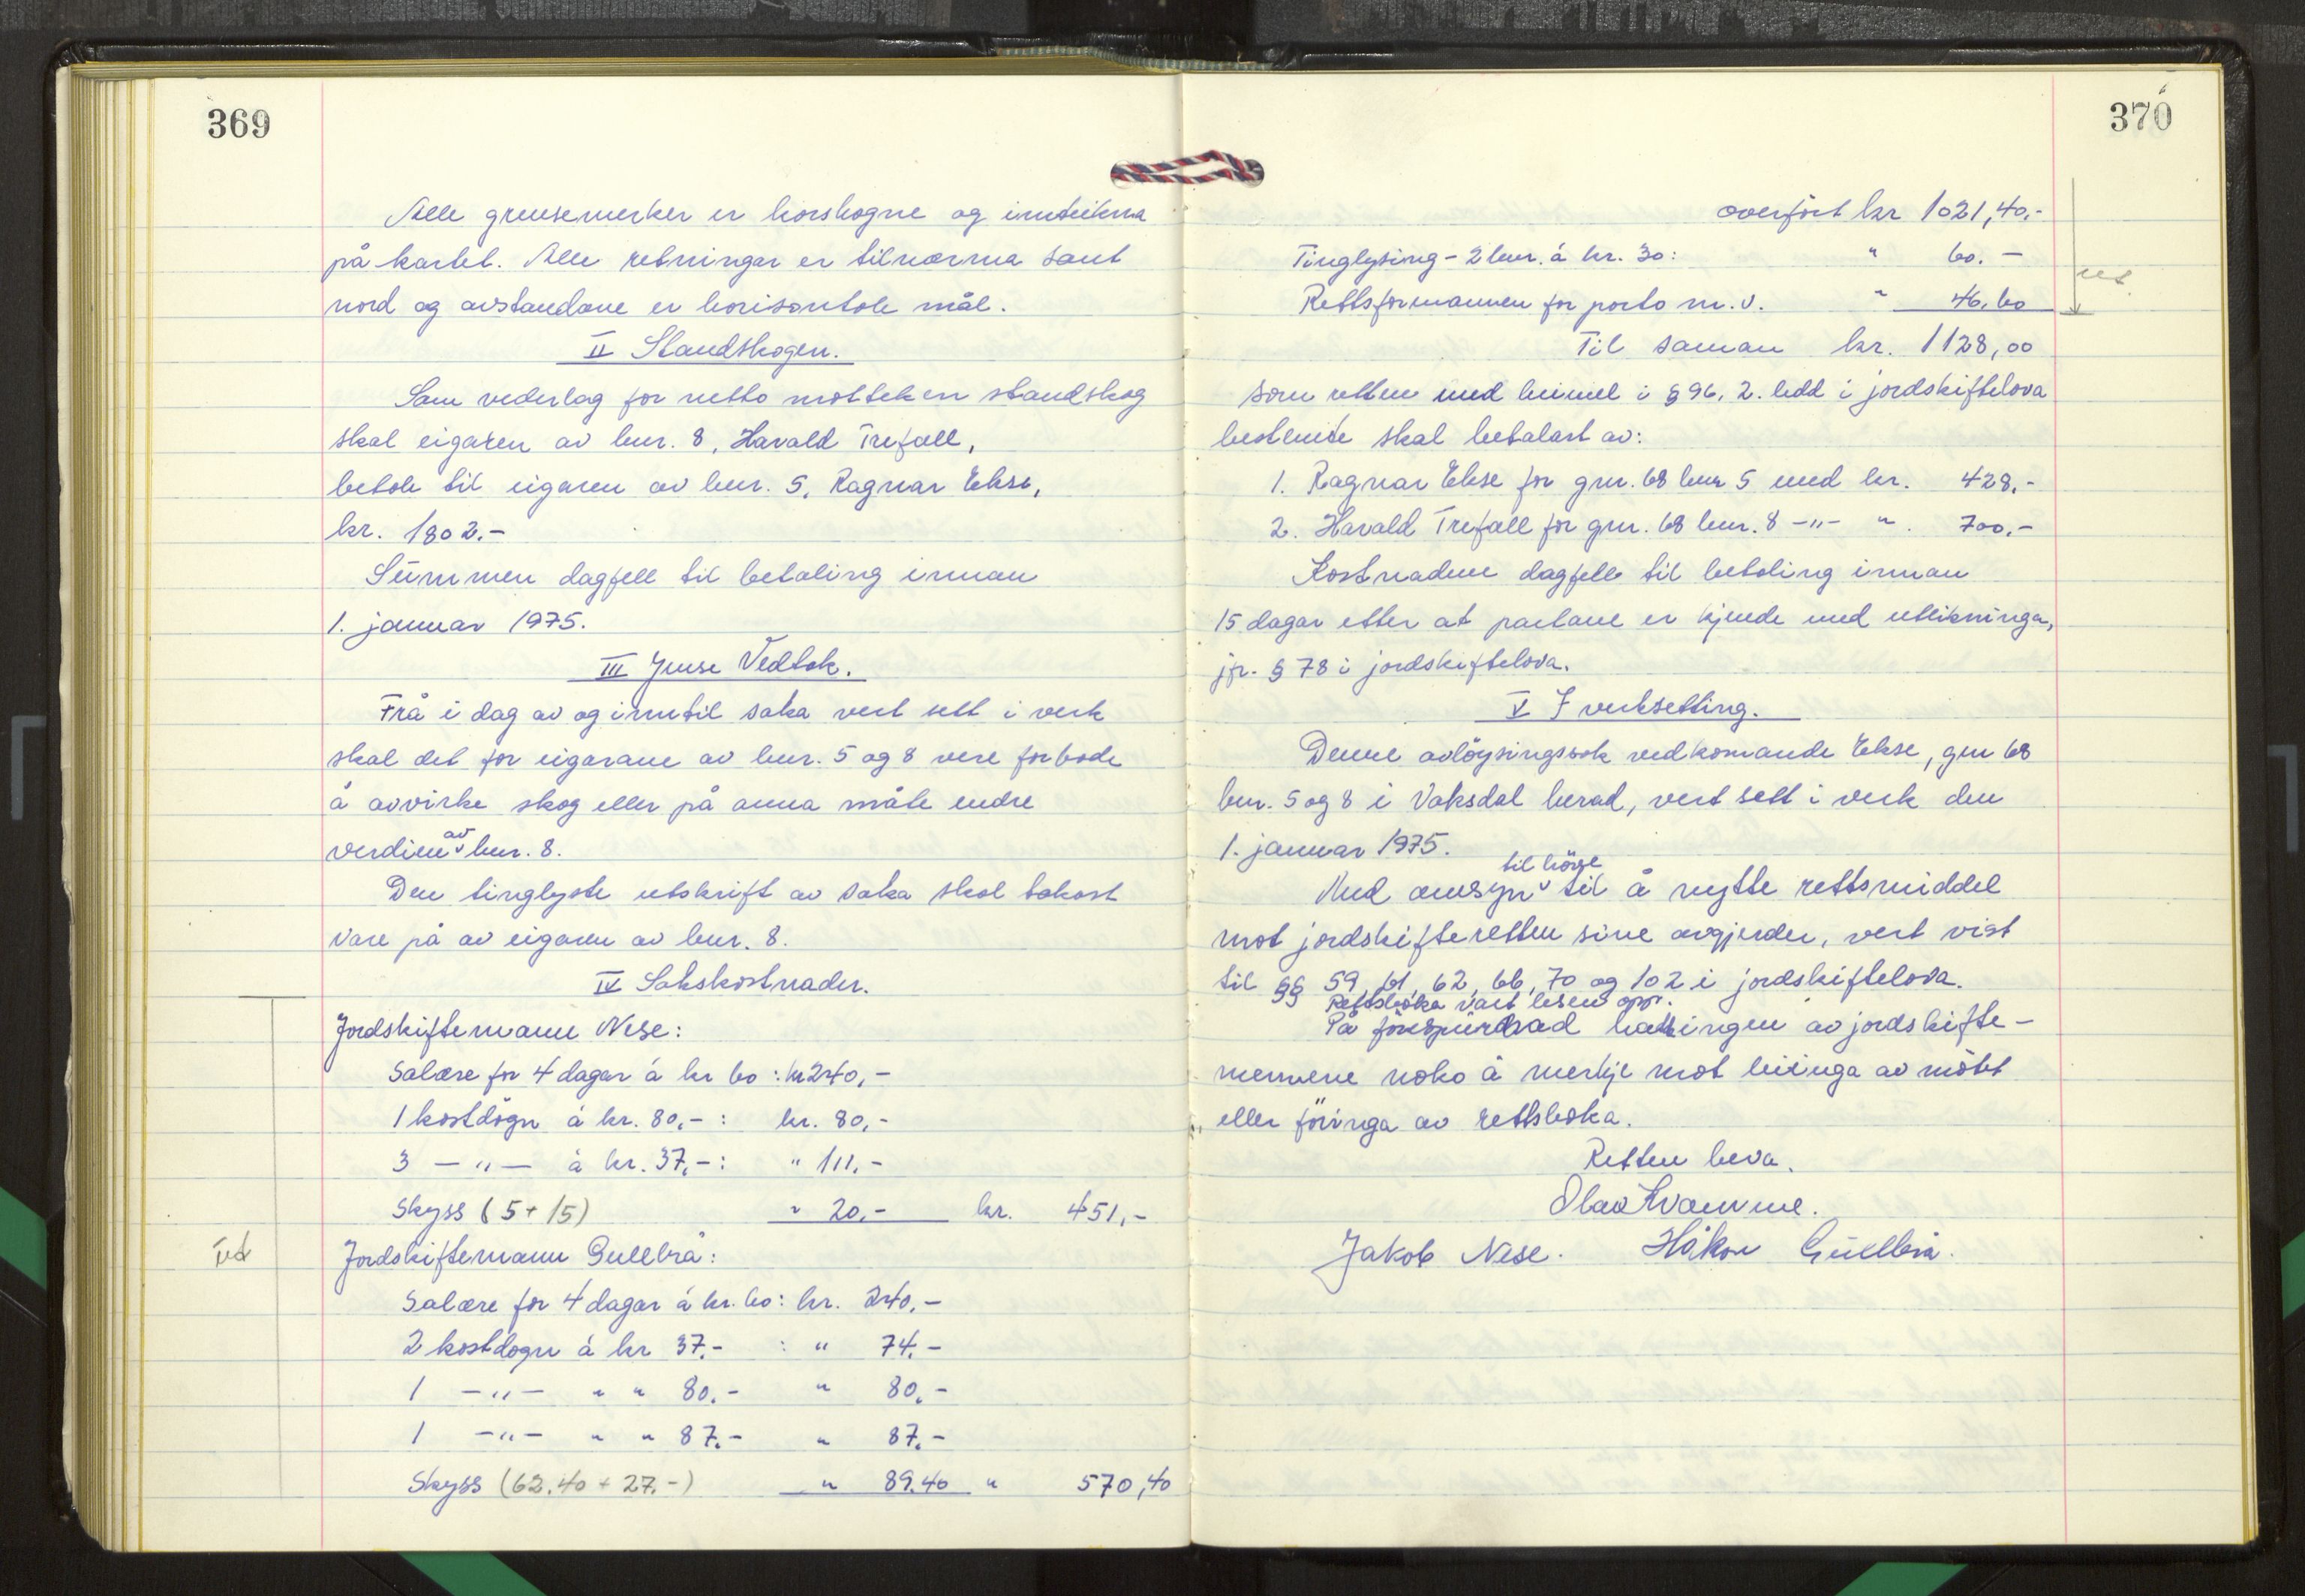 369
Alle grensemerker er krosshogne og innteikna
på kartet. Alle retningar er tilnærma sant
nord og avstandane er horisontale mål.
II Standskogen.
Som vederlag for netto motteken standskog
skal eigaren av bnr. 8, Harald Trefall,
betale til eigaren av bnr. 5, Ragnar Ekse,
kr. 1802.-
Summen dagfell til betaling innan
1. januar 1975.
III Ymse Vedtak.
Frå i dag av og inntil saka vert sett i verk
skal det for eigarane av bnr. 5 og 8 vere forbode
å avvirke skog eller på anna måte endre
verdien av bnr. 8.
Den tinglyste utskrift av saka skal takast
vare på av eigaren av bnr. 8.
IV Sakskostnader.
Jordskiftemann Nese:
Salære for 4 dagar á kr 60: kr 240,-
1 kostdøgn á kr. 80,-: kr. 80,-
3 -"- á kr. 37,-: " 111,-
Skyss (5+15) " 20,- kr. 451,-
Jordskiftemann Gullbrå:
Salære for 4 dagar á kr. 60: kr. 240,-
2 kostdøgn á kr 37.- : " 74.-
1 -"- " " 80.- " 80.-
1 -"- " " 87.- " 87.-
Skyss (62.40 + 27.-) " 89.40 " 570,40
370
overført kr 1021,40.-
Tinglysing - 2 bnr. á kr. 30: " 60.-
Rettsformannen for porto m.v. " 46,60
Til saman kr. 1128,00
som retten med heimel i § 96, 2. ledd i jordskiftelova
bestemte skal betalast av:
1. Ragnar Ekse for gnr. 68 bnr 5 med kr. 428,-
2. Harald Trefall for gnr. 68 bnr. 8 -"- " 700.-
Kostnadene dagfell til betaling innan
15 dagar etter at partane er kjende med utlikninga,
jfr. § 78 i jordskiftelova.
V Iverksetting.
Denne avløysingssak vedkomande Ekse, gnr 68
bnr. 5 og 8 i Vaksdal herad, vert sett i verk den
1. januar 1975.
Med omsyn til høve til å nytte rettsmiddel
mot jordskifteretten sine avgjerder, vert vist
til §§ 59, 61, 62, 66, 70 og 102 i jordskiftelova.
Rettsboka vart lesen opp.
På førespurnad hadde ingen av jordskifte-
mennene noko å merkje mot leiinga av møtet
eller føringa av rettsboka.
Retten heva.
Olav Kvamme.
Jakob Nese. Håkon Gullbrå.